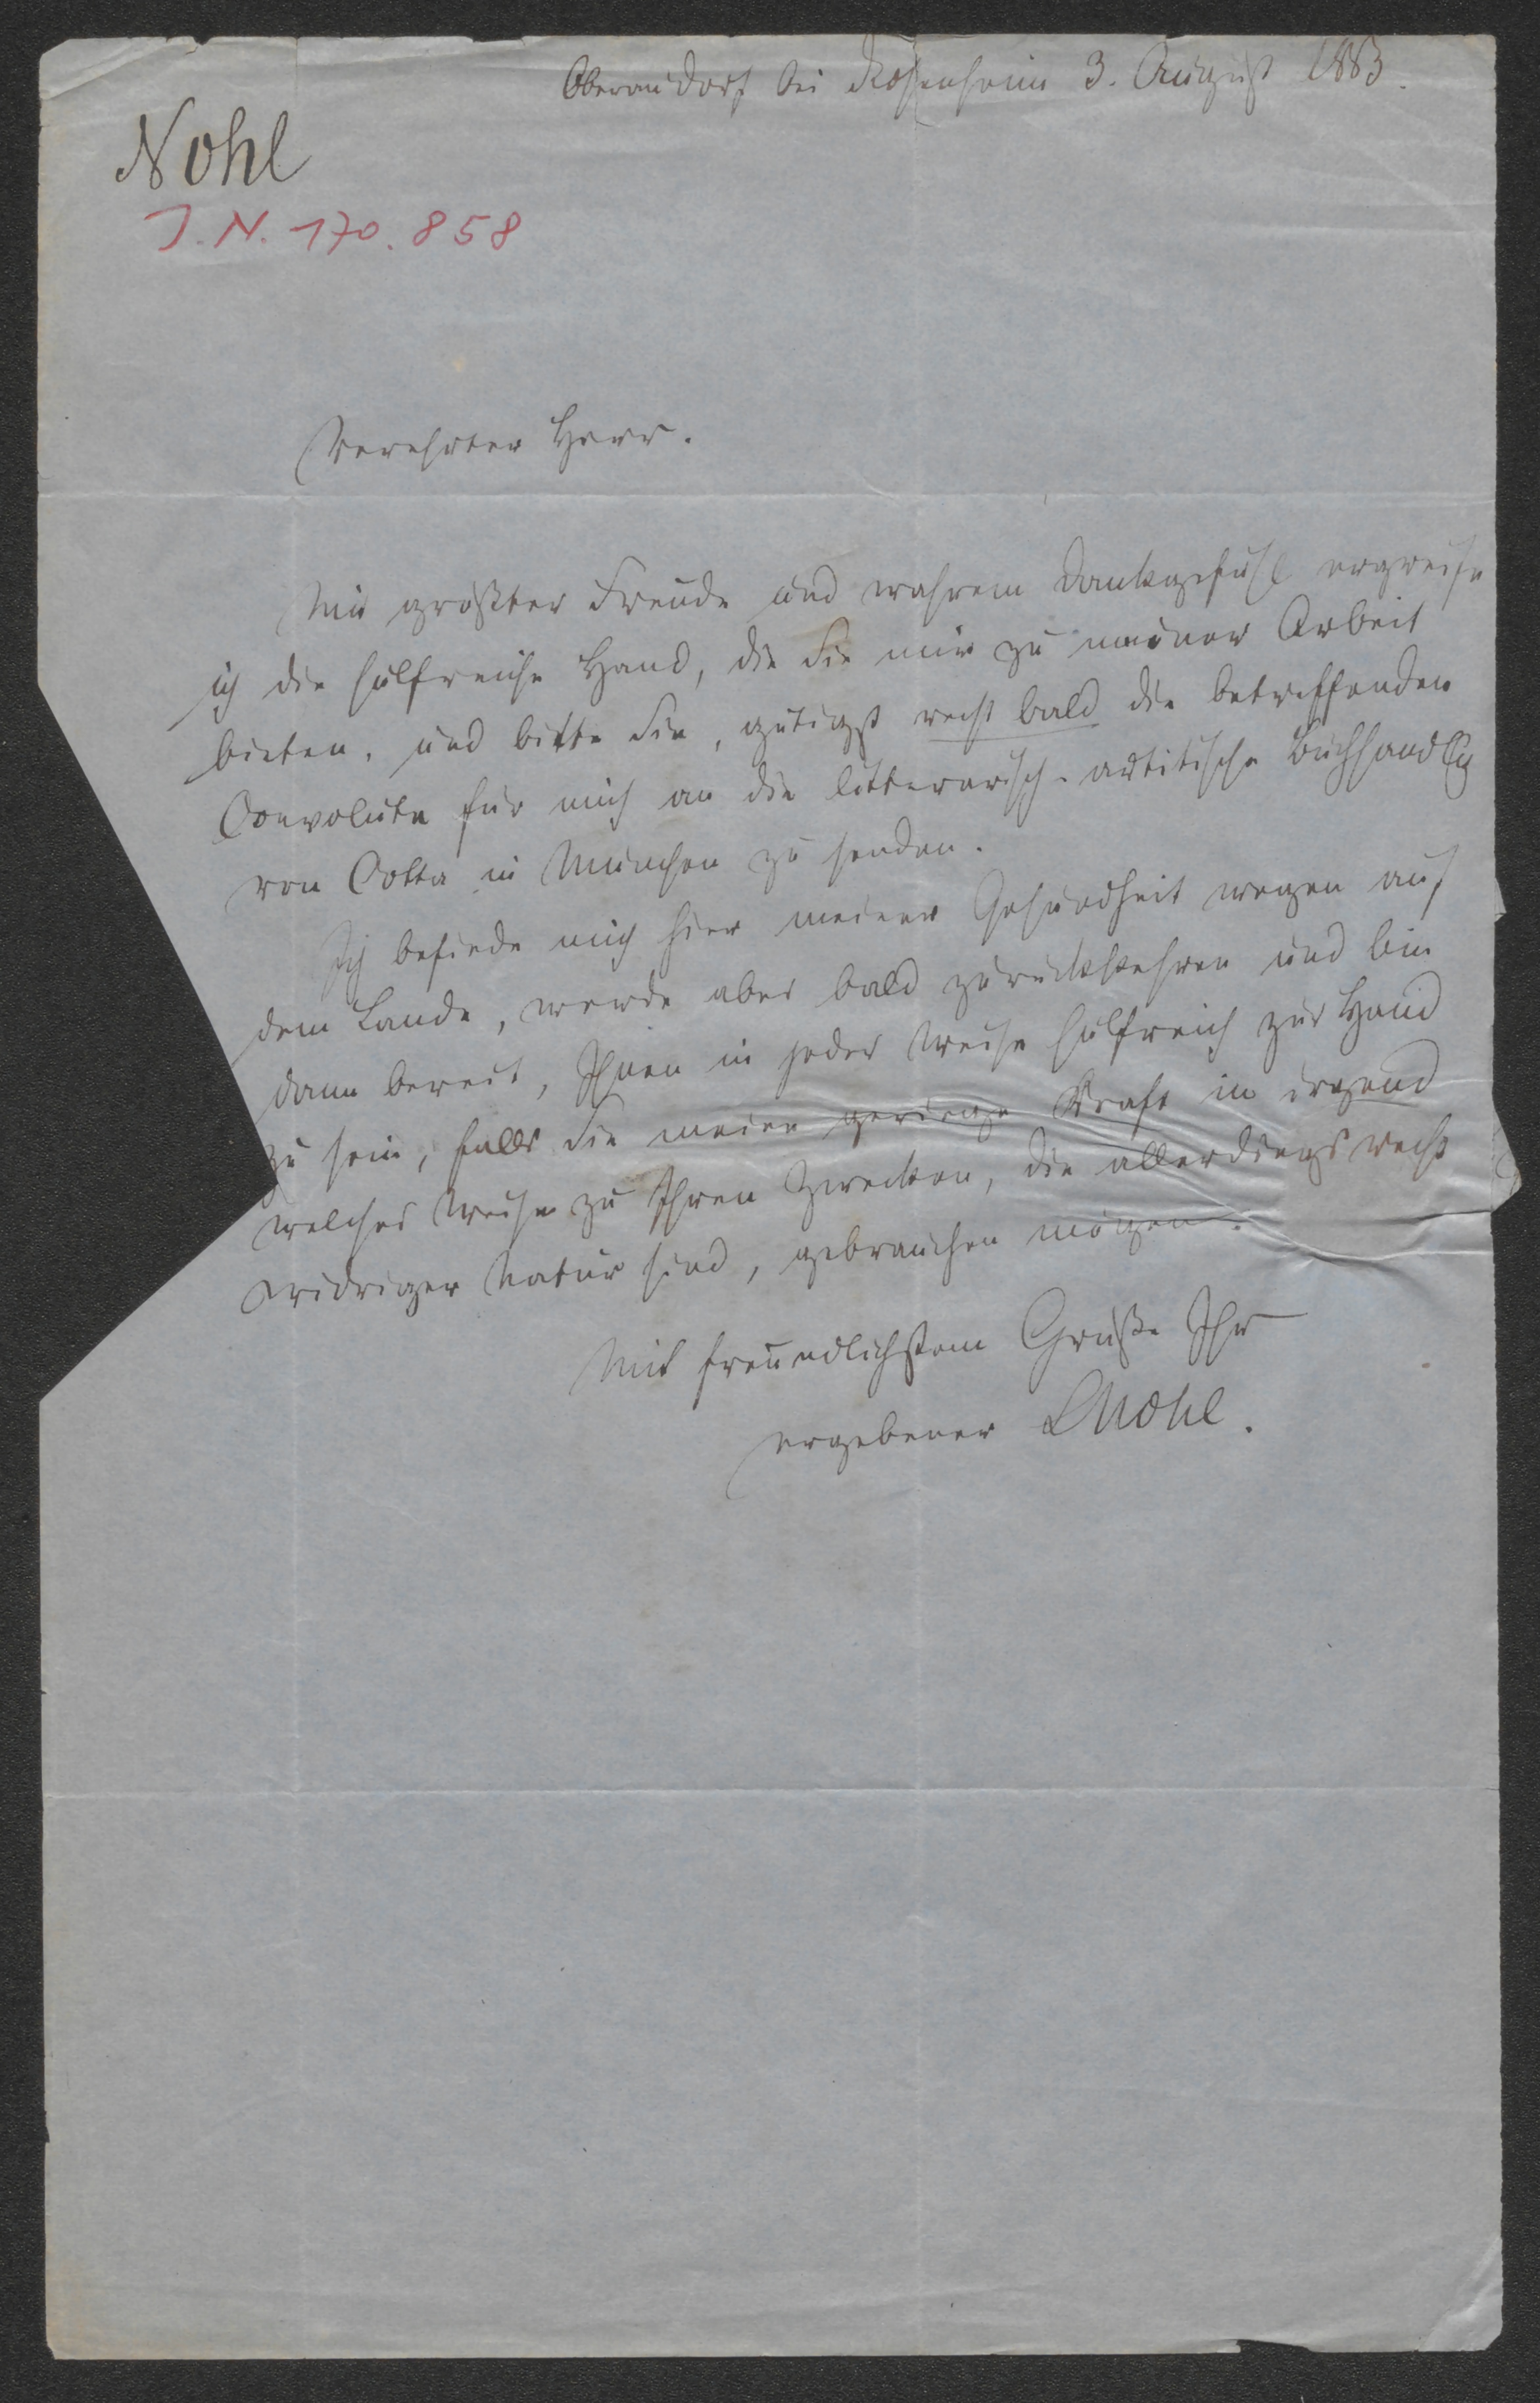 Oberaudorf bei Rosenheim 3. August 1863.
Nohl
J. N. 170.858
Verehrter Herr.
Mit größter Freude und wahrem Dankgefühl ergreife
ich die hülfreiche Hand, die Sie mir zu meiner Arbeit
bieten, und bitte Sie, gütigst recht bald die betreffenden
Convolute für mich an die litterarisch-artitische Buchhandlg
von Cotta in München zu senden.
Ich befinde mich hier meiner Gesundheit wegen auf
dem Lande, werde aber bald zurückkehren und bin
dann bereit, Ihnen in jeder Weise hülfreich zur Hand
zu sein, falls Sie meine geringe Kraft in irgend
welcher Weise zu Ihren Zwecken, die allerdings recht
widriger Natur sind, gebrauchen mögen.
Mit freundlichstem Gruße Ihr
ergebener LNohl.